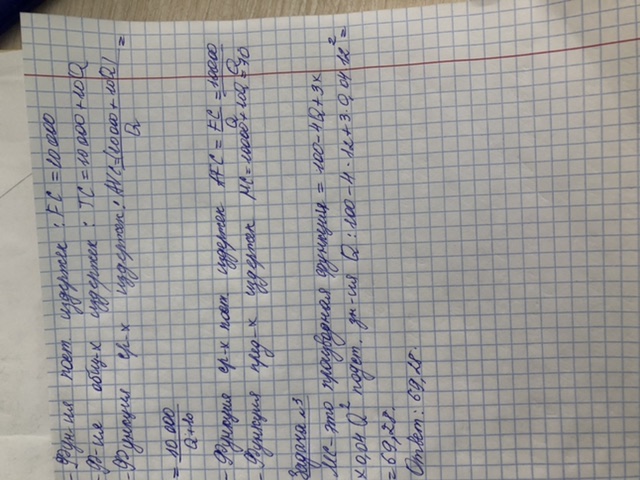 - Функ-ия пост издержек : FC = 10 000
- Ф-ия общих издержек : TC = 10 000 + 10Q
- Функция ср-х издержек : AVC = (10 000 + 10Q) / Q =
= 10 000 / Q + 10
- Функция ср-х пост издержек AFC = FC / Q = 10000 / Q
- Функция пред-х издержек MC = 10000 + 10Q = 90
Задача №3
MC - это производная функции = 100 - 4Q + 3 x
x 0,04 Q² подст. зн-ия Q : 100 - 4 · 12 + 3 · 0,04 · 12² =
= 69,28.
Ответ : 69,28.